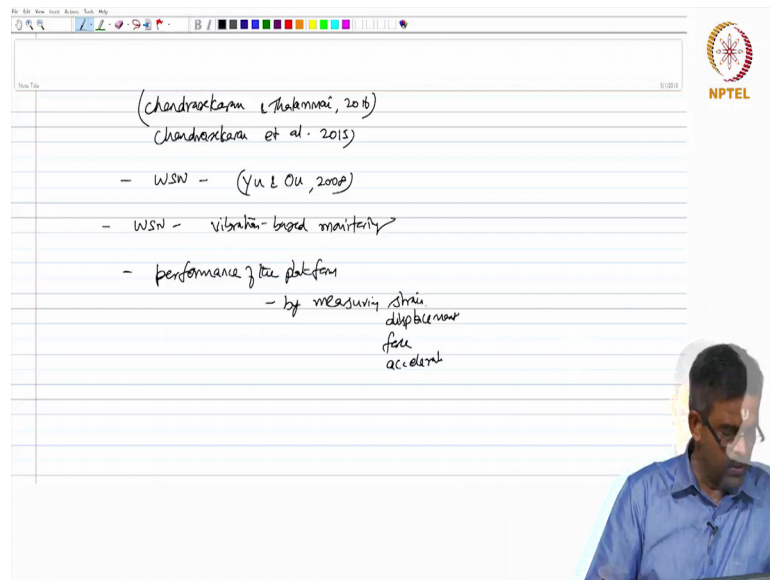 File Edit View Insert Actions Tools Help
B I
Note Title
5/1/2018
NPTEL
(Chandrasekaran & Thailammai, 2016)
Chandrasekaran et al. 2015)
- WSN - (Yu & Ou, 2008)
- WSN - vibration-based monitoring
- performance of the platform
- by measuring strain.
displacement
force
accelerat